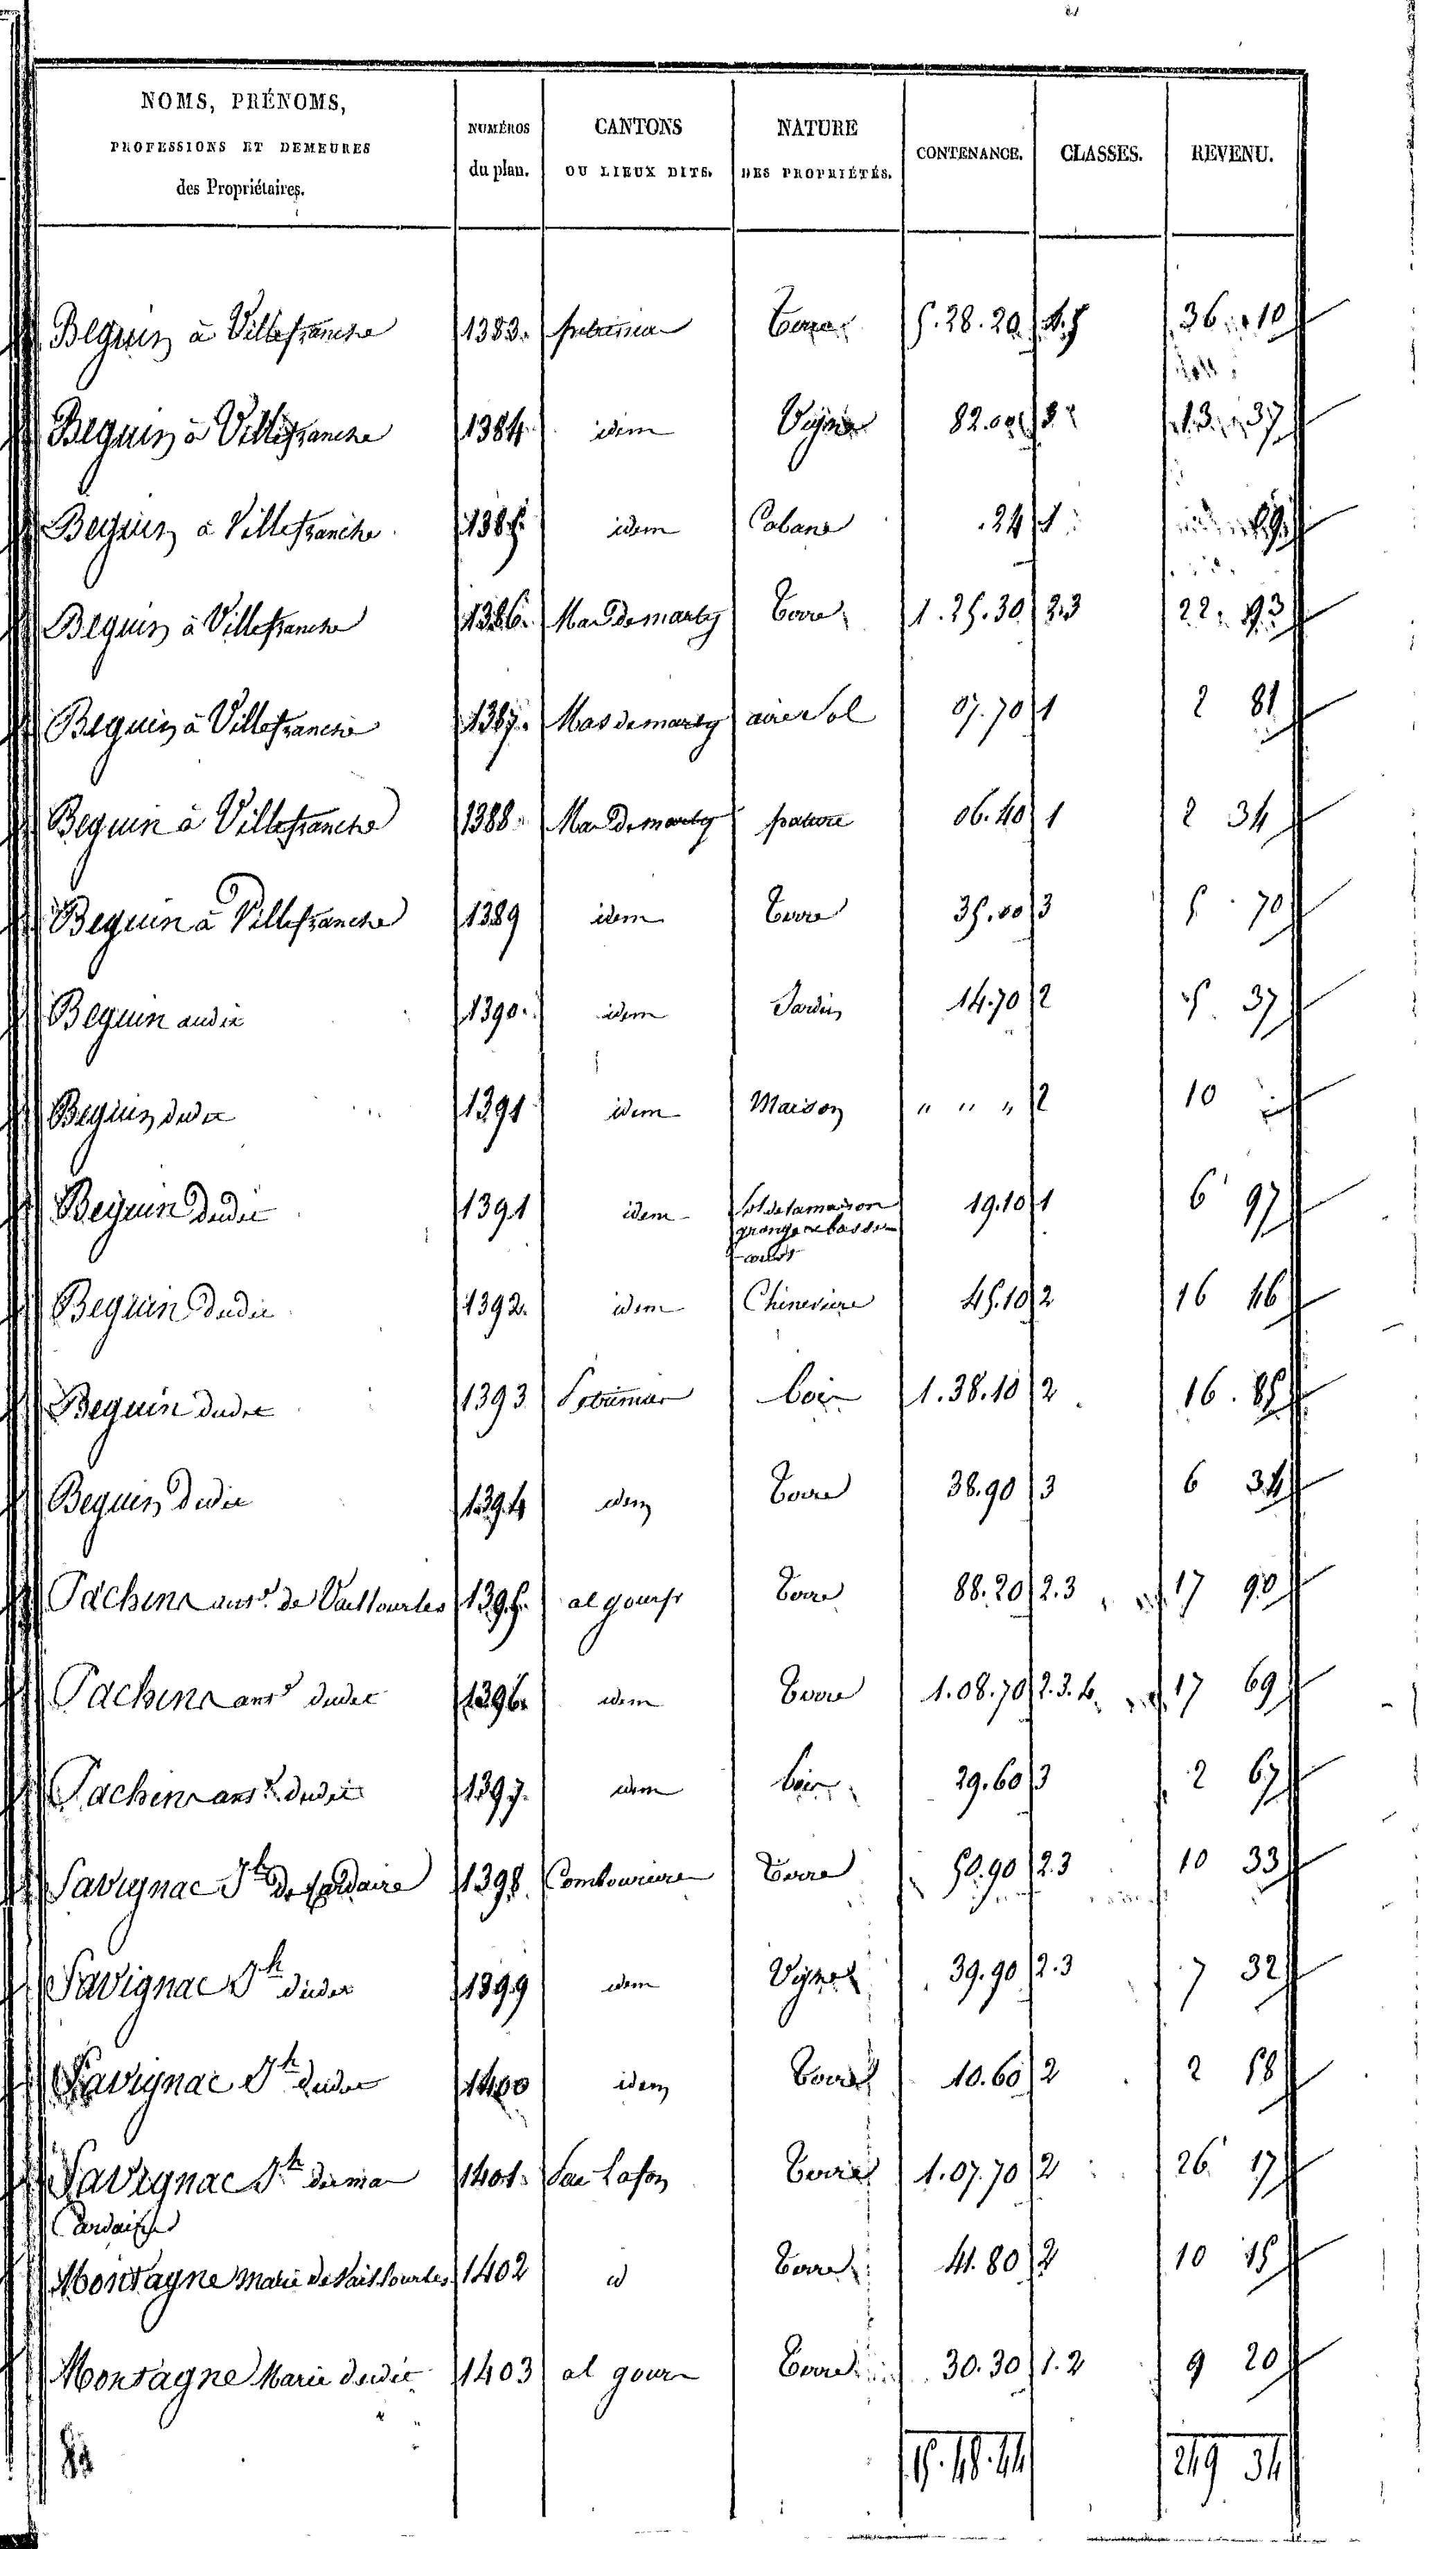 NOMS, PRÉNOMS,
PROFESSIONS ET DEMEURES
des Propriétaires.
NUMÉROS
du plan.
CANTONS
OU LIEUX DITS.
NATURE
DES PROPRIÉTÉS.
CONTENANCE.
CLASSES.
REVENU.
Beguin à Villefranche 1383. Terre 5.28.20 4.5 36 10
Beguin à Villefranche 1384 idem Vigne 82.00 13 37
Beguin à Villefranche 1385 idem Cabane .24 1
Beguin à Villefranche 1386. Mas de marty Terre 1.25.30 2.3 22 93
Beguin à Villefranche 1387. Mas de marty aire Sol 07.70 1 2 81
Beguin à Villefranche 1388. Mas de marty pature 06.40 1 2 34
Beguin à Villefranche 1389 idem Terre 35.00 3 5 70
Beguin audit 1390. idem Jardin 14.70 2 5 37
Beguin dudit 1391 idem Maison " " " 2 10
Beguin dudit 1391 idem Sol de la maison
grange et basse
cour 19.10 1 6 97
Beguin dudit 1392. idem Cheneviere 45.10 2 16 46
Beguin dudit 1393 bois 1.38.10 2 16.85
Beguin dudit 1394 idem Terre 38.90 3 6 34
Pachins de Vailhourles 1395. al gourp Terre 88.20 2.3 17 90
Pachins dudit 1396. idem Terre 1.08.70 2.3.4. 17 69
Pachins dudit 1397. idem bois 29.60 3 2 67
Savignac Jh de 1398. Terre 50.90 2.3 10 33
Savignac Jh dudit 1399 idem Vigne 39.90 2.3 7 32
Savignac Jh dudit 1400 idem Terre 10.60 2 2 58
Savignac Jh du mas 1401. Lafon Terre 1.07.70 2 26 17
Montagne Marie de Vailhourles 1402 id Terre 41.80 2 10 15
Montagne Marie dudit 1403 al gour Terre 30.30 1.2 9 20
15.48.44 249 34